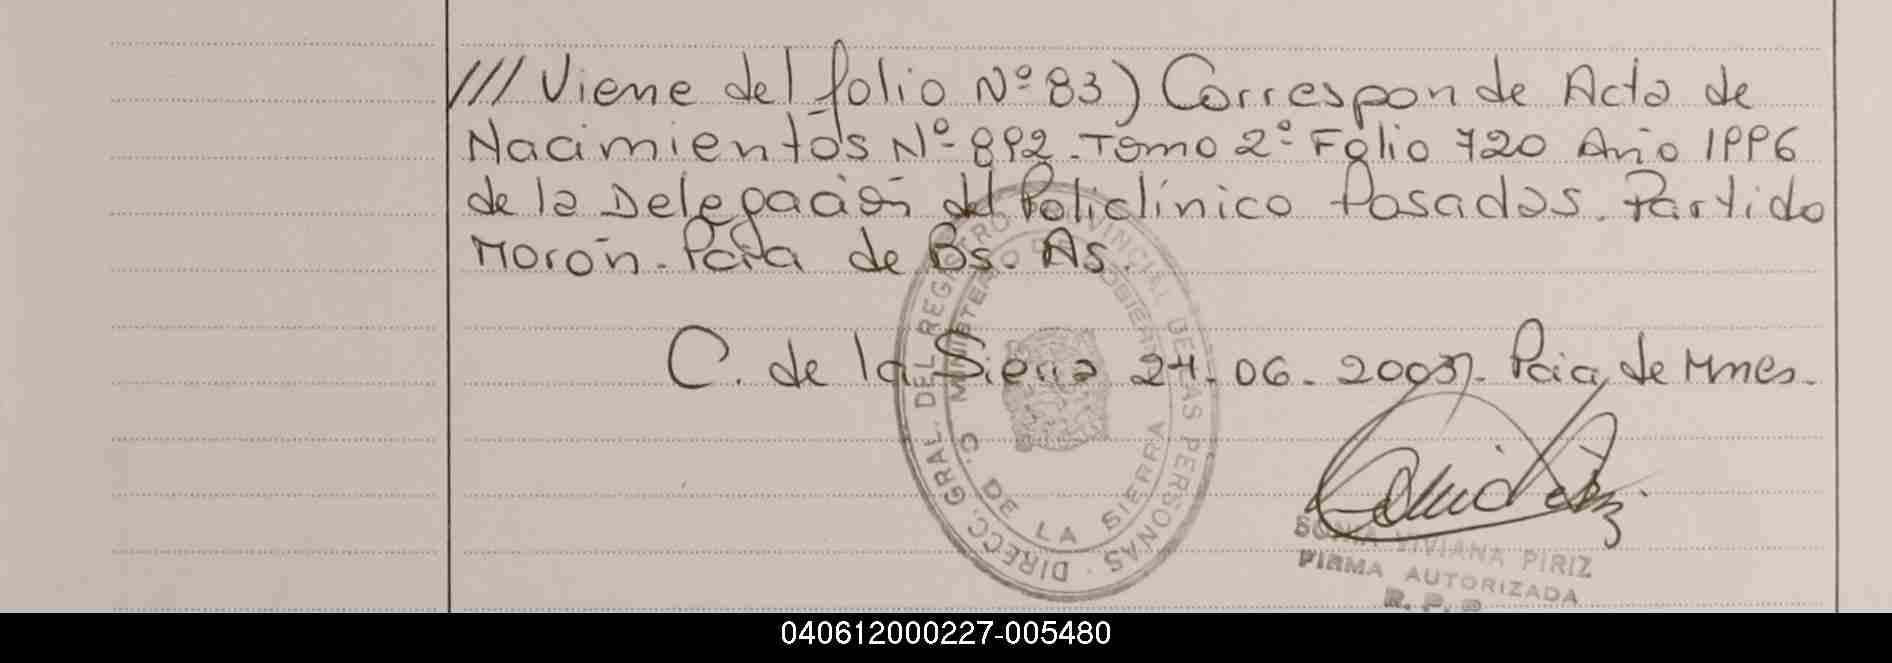 /// Viene del folio Nº 83) Corresponde Acta de
Nacimientos Nº 892. Tomo 2º Folio 720 Año 1996
de la Delegación del Policlínico Posadas. Partido
Morón. Pcia de Bs. As.
C. de la Sierra 24.06.2003. Pcia de Mnes.
DIRECC. GRAL. DEL REGISTRO PROVINCIAL DE LAS PERSONAS
MINISTERIO DE GOBIERNO
C. DE LA SIERRA
SONIA VIVIANA PIRIZ
FIRMA AUTORIZADA
R. P. P
040612000227-005480